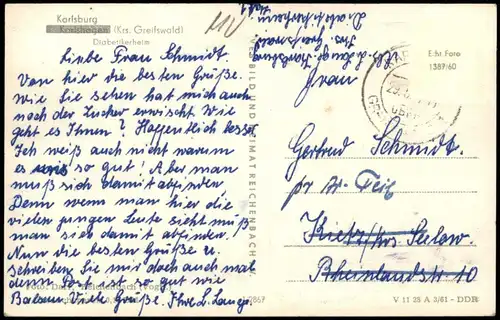 Karlsburg
Karlshagen (Krs. Greifswald)
Diabetikerheim
Liebe Frau Schmidt
Von hier die besten Grüße.
Wie Sie sehen hat mich auch
noch der Zucker erwischt Wie
geht es Ihnen? Hoffentlich besser.
Ich weiß auch nicht warum
es uns so gut! Aber man
muß sich damit abfinden.
Denn wenn man hier die
vielen jungen Leute sieht muß
man sich damit abfinden.
Nun die besten Grüße u.
schreiben Sie mir doch auch mal
denn Post ist so gut wie
Balsam. Viele Grüße. Ihre L. Lange.
BILD UND HEIMAT REICHENBACH
Foto: Reichenbach (Vogtl.)
Abs. L. Lange, Karlsburg
Krs. Greifswald
Diabetikerheim
Frau
E.hr.Foro
1387/60
Gertrud Schmidt.
Kietz/Krs. Seelow.
Rheinlandstr. 10
V 11 28 A 3/61 - DDR